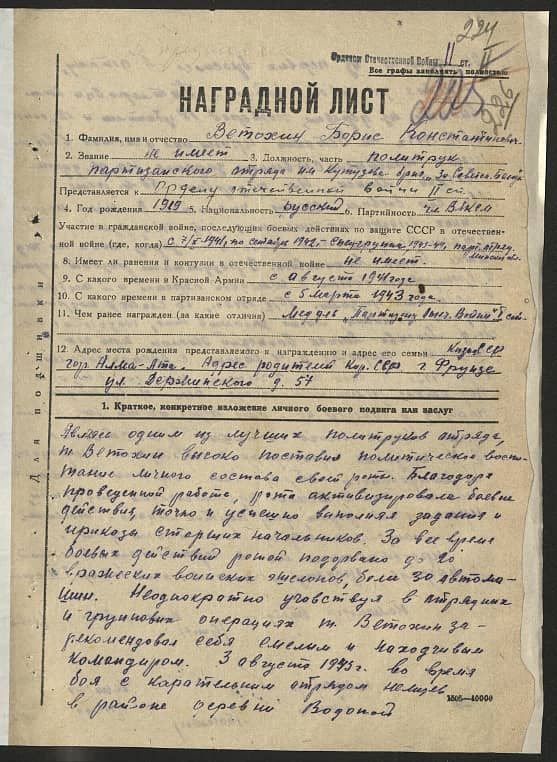 224
Орденом Отечественной Войны II ст.
Все графы заполнять полностью
226
НАГРАДНОЙ ЛИСТ
1. Фамилия, имя и отчество Ветохин Борис Константинович
2. Звание не имеет 3. Должность, часть политрук
партизанского отряда им Кутузова
Представляется к Ордену отечественной войны II ст.
4. Год рождения 1919 5. Национальность русский 6. Партийность чл. ВЛКСМ
Участие в гражданской войне, последующих боевых действиях по защите СССР в отечествен-
ной войне (где, когда)
8. Имеет ли ранения и контузии в отечественной войне не имеет.
9. С какого времени в Красной Армии с августа 1941 года
10. С какого времени в партизанском отряде с 5 марта 1943 года.
11. Чем ранее награжден (за какие отличия) Медаль „Партизану Отеч. Войны"
12 Адрес места рождения представляемого к награждению и адрес его семьи Казах ССР
гор Алма-Ата. Адрес родителей Кир. ССР г. Фрунзе
ул. Дзержинского д. 57
Для подшивки
1. Краткое, конкретное изложение личного боевого подвига или заслуг
одним из лучших политруков отряда,
т. Ветохин высоко поставил политическое воспи-
тание личного состава своей роты. Благодаря
проведенной работе, рота активизировала боевые
действия, точно и успешно выполняя задания и
приказы старших начальников. За все время
боевых действий ротой подорвано до 20
вражеских воинских эшелонов, более 30 автома-
шин. Неоднократно учавствуя в отрядных
и групповых операциях т. Ветохин за-
рекомендовал себя смелым и находчивым
командиром. 3 августа 1943 г. во время
боя с карательным отрядом немцев
в районе деревни Водопой
1505—40000